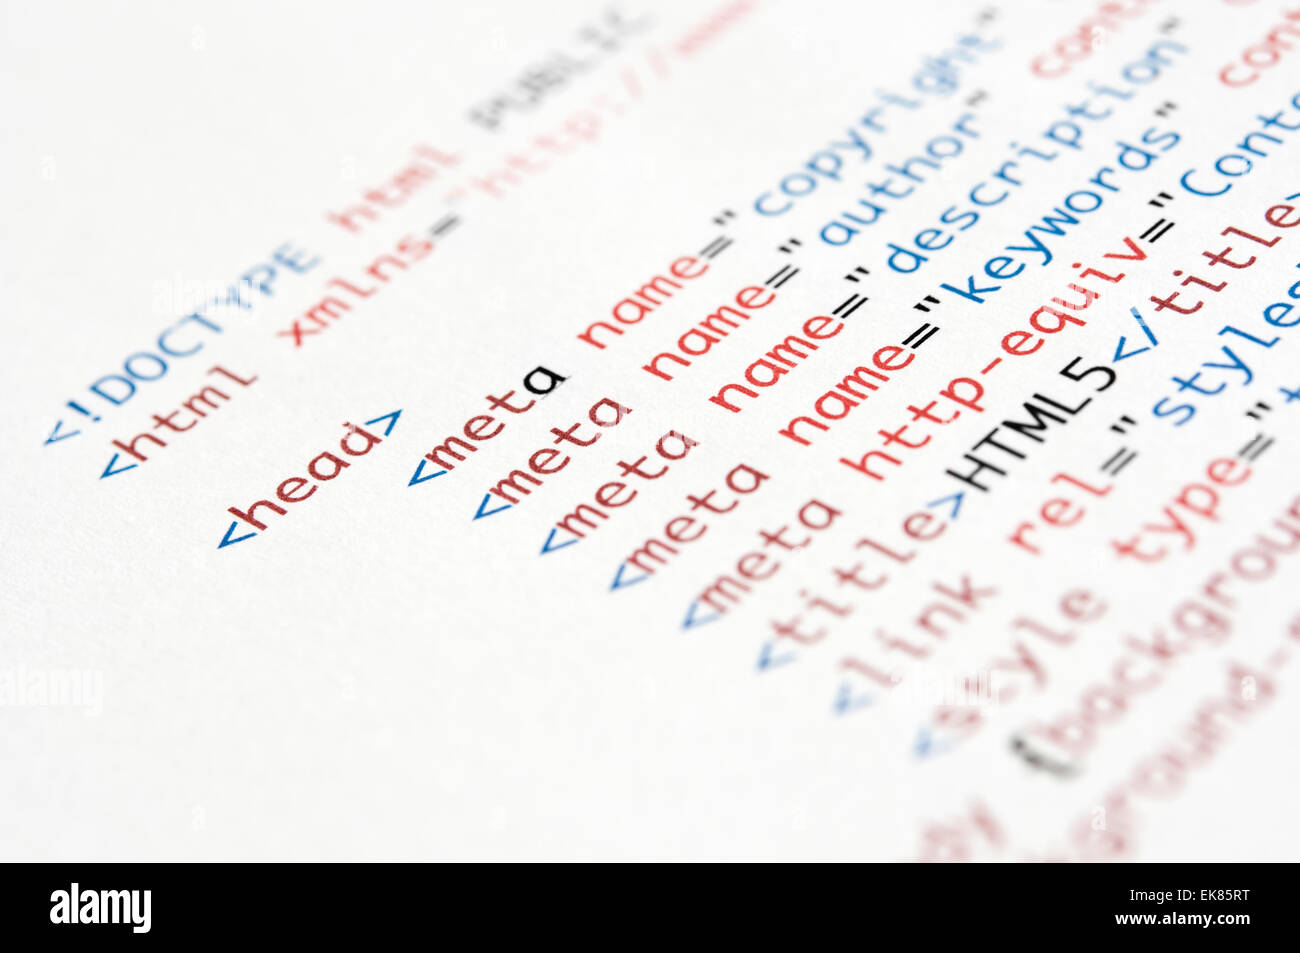 <!DOCTYPE html PUBLIC
<html xmlns="http://www
<head>
<meta name="copyright"
<meta name="author"
<meta name="description"
<meta name="keywords"
<meta http-equiv="Conte
<title>HTML5</title>
<link rel="styles
<style type="t
{background
ground-
alamy
Image ID: EK85RT
www.alamy.com